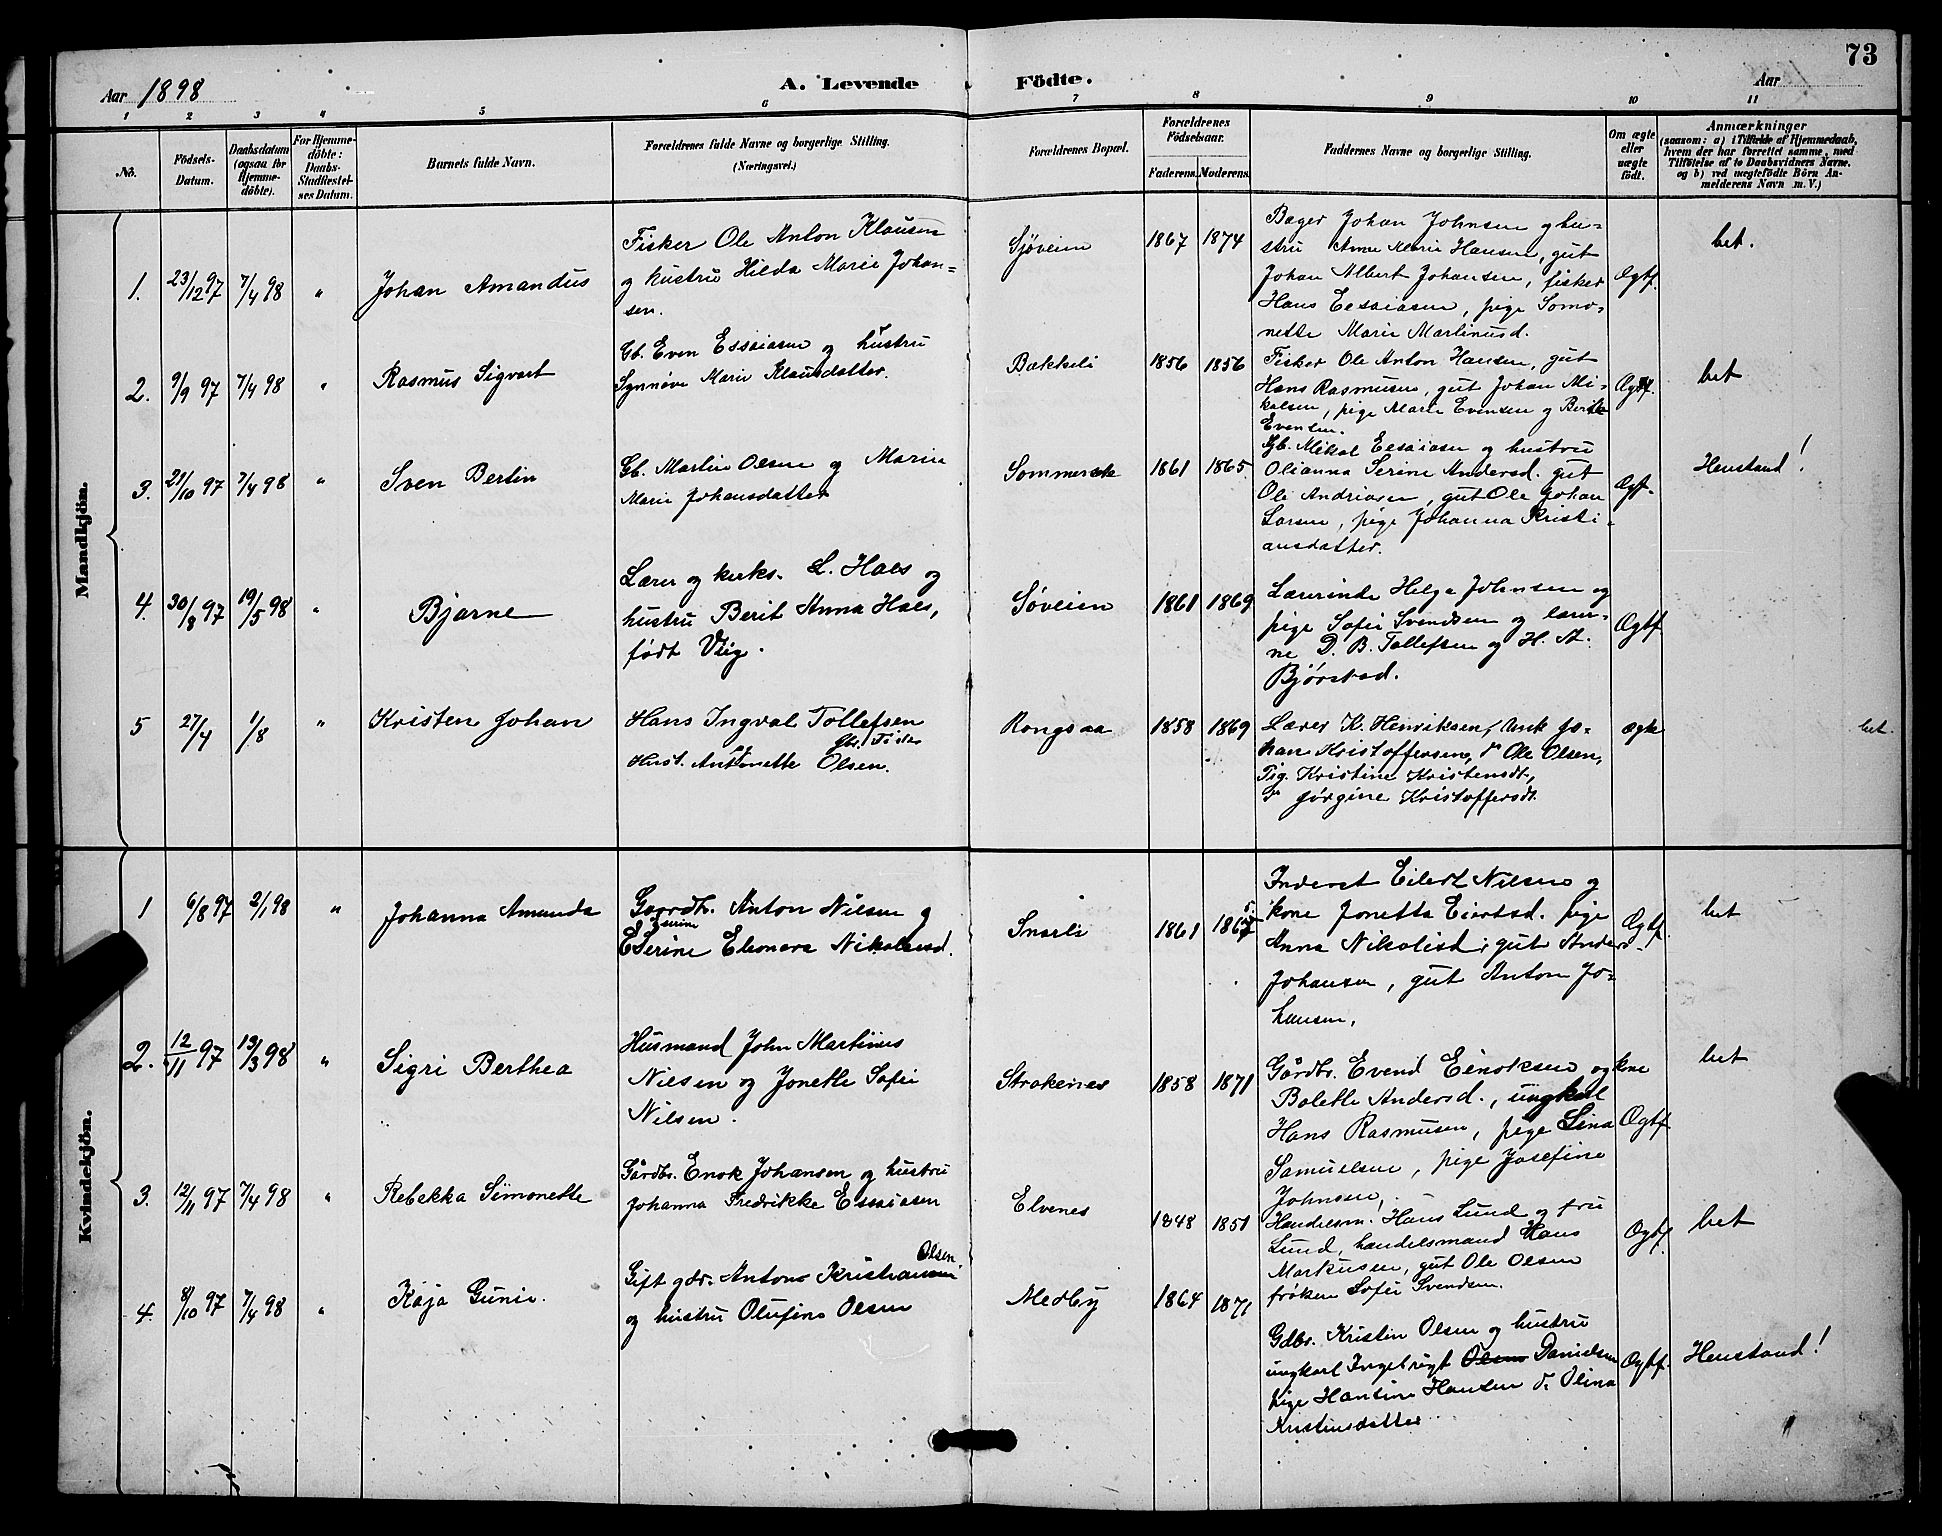 73
Aar 1898
A. Levende
Födte.
Aar
1 2 3 4 5 6 7 8 9 10 11
No.
Födsels-
Datum.
Daabsdatum
(ogsaa for
Hjemme-
döbte).
For Hjemme-
döbte:
Daabs-
Stadfæstel-
ses Datum.
Barnets fulde Navn.
Forældrenes fulde Navne og borgerlige Stilling.
(Næringsvei.)
Forældrenes Bopæl.
Forældrenes
Födselsaar.
Faderens. Moderens.
Faddernes Navne og borgerlige Stilling.
Om ægte
eller
uægte
födt.
Anmærkninger
(saasom: a) i Tilfælde af Hjemmedaab,
hvem der har forrettet samme, med
Tilföielse af to Daabsvidners Navne,
og b) ved uægtefödte Börn An-
melderens Navn m. V.)
Mandkjön.
1.
23/12 97
7/4 98
"
Johan Amandus
Fisker Ole Anton Klausen
og hustru Hilda Marie Johan=
sen.
Sjøveien
1867
1874
Bager Johan Johnsen og hu-
stru Anne Marie Hansen, gut
Johan Albert Johansen, fisker
Hans Eesaiasen, pige Somo-
nette Marie Martinusd.
Ægtf.
bet.
2.
9/9 97
7/4 98
"
Rasmus Sigvart
Gb. Even Essaiasen og hustru
Synnøve Marie Klausdatter.
Bakkeli
1856
1856
Fisker Ole Anton Hansen, gut
Hans Rasmusen, gut Johan Mi-
kalsen, pige Marie Evensen g Berith
Evensen.
Ægtf.
bet
3.
21/10 97
7/4 98
"
Sven Bertin
Gb. Martin Olsen og Marin
Marie Johansdatter
1861
1865
Gb. Mikal Eesaiasen og hustru
Olianna Serine Andersd. gut
Ole Andriasen, gut Ole Johan
Larsen, pige Johanna Kristi-
ansdatter.
Ægf.
Henstand!
4.
30/8 97
19/5 98
"
Bjarne
Lærer og kirks. L. Haes og
hustru Berit Anna Haes,
født Viig.
Søveien
1861
1869
Lærerinde Helga Johnsen og
pige Sofie Svendsen og lærer-
ne D. B. Tollefsen og H. A.
Bjørstad.
Ægtf
5
27/4
1/8
"
Kristen Johan
Hans Ingval Tollefsen
Gbr. Fisker
Hust. Antonette Olsen.
Rongsaa
1858
1869
Lærer K. Henriksen, Unk Jo-
han Kristoffersen, do Ole Olsen,
Pig. Kristine Kristensdt,
do Jørgine Kristoffersdt.
ægte
bet.
Kvindekjön.
1
6/8 97
2/1 98
"
Johanna Amanda
Gaardb. Anton Nilsen g
Serine Eleonora Nikolaisd.
Snarli
1861
Inderst Eilert Nilsen og
kone Jonetta Eiertsd. pige
Anna Nikolisd, gut Anders
Johansen, gut Anton Jo-
hansen,
Ægtf.
bet
2.
12/11 97
13/3 98
"
Sigri Berthea
Husmand John Martinus
Nilsen og Jonette Sofie
Nilsen.
Strokenes
1858
1871
Gårdbr. Evend Einoksen og kone
Bolette Andersd., ungkal
Hans Rasmusen, pige Lina
Samuelsen, pige Josefine
Johnsen,
Ægtf
bet
3.
12/11 97
7/4 98
"
Rebekka Simonette
Gårdbr. Enok Johansen og hustru
Johanna Fredrikke Essaiasen
Elvenes
1848
1851
Handelsm. Hans Lund og fru
Lund, handelsmand Hans
Markusen, gut Ole Olsen
frøken Sofie Svendsen.
Ægtf.
bet
4.
8/10 97
7/4 98
"
Kaja Gunie.
Olsen
Gift gdr. Anton Kristiansen
og hustru Olufine Olsen
Medby
1864
1871
Gdbr. Kristin Olsen og hustru
ungkarl Ingebrigt Olsen Danielsen
pige Hansine Hansen d. Olina
Kristinsdatter
Ægtf.
Henstand!